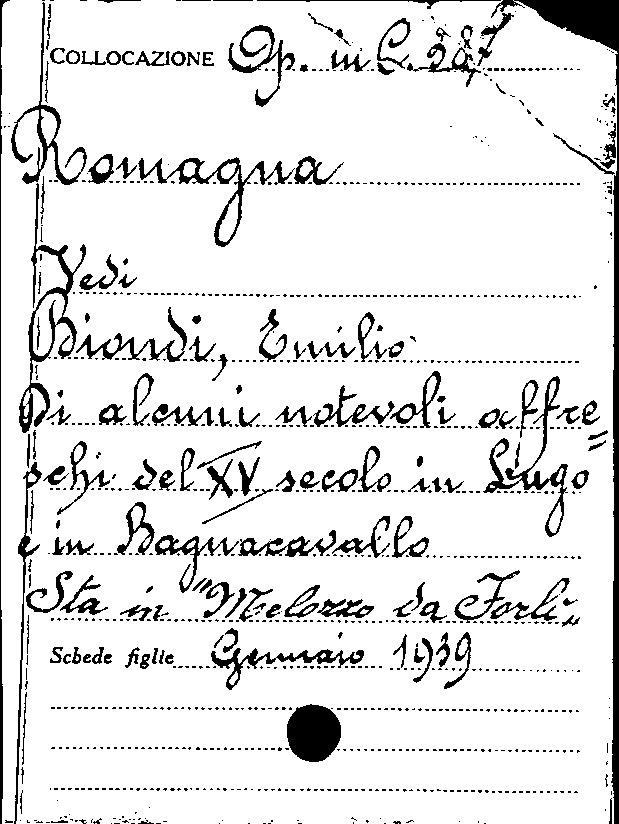 COLLOCAZIONE Op. in G. 287
Romagna
Vedi
Biondi, Emilio
Di alcuni notevoli affre=
schi del XV secolo in Lugo
e in Bagnacavallo
Sta in "Melozzo da Forlì"
Schede figlie Gennaio 1939